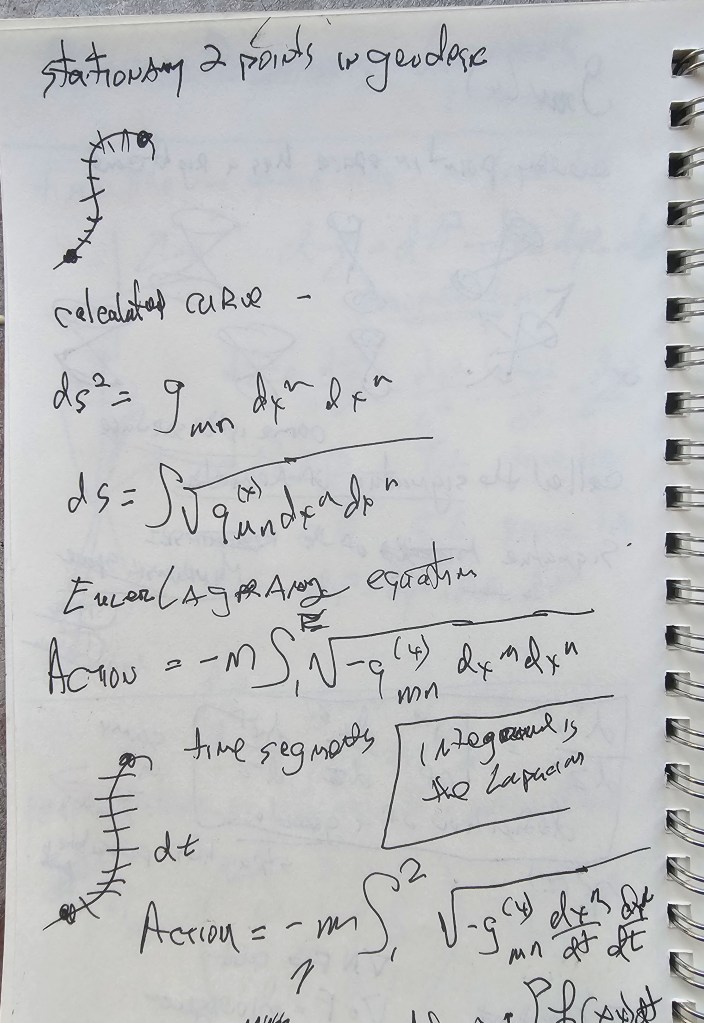 stationary 2 points in geodesic
calculated curve -
ds² = g_mn dx^m dx^n
ds = ∫√(g_mn(x) dx^m dx^n)
Euler Lagrange equation
Action = -m ∫₁ √(-g_mn(x) dx^m dx^n)
time segments
Integrand is
the
dt
Action = -m ∫₁² √(-g_mn(x) dx^m/dt dx^n/dt)